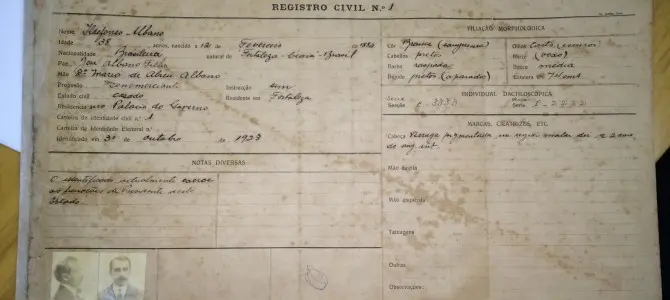 REGISTRO CIVIL N.º 1
Nome Ildefonso Albano
Idade 38 annos, nascido a 12 de Fevereiro de 1885
Nacionalidade Brasileira natural de Fortaleza-Ceará-Brasil
Pae José Albano Filho
Mãe D. Maria de Abreu Albano
Profissão Commerciante Instrucção sim
Estado civil casado Residente em Fortaleza
Residencia no Palacio do Governo
Carteira de identidade civil n.º 1
Carteira de Identidade Eleitoral n.º
Identificado em 3 de outubro de 1923
NOTAS DIVERSAS
O identificado actualmente exerce
as funcções de Presidente deste
Estado.
FILIAÇÃO MORPHOLOGICA
Côr Branca (sanguineo)
Cabellos pretos
Barba raspada
Bigode pretos (aparado)
Olhos
Nariz
Bocca média
Estatura
INDIVIDUAL DACTILOSCÓPICA
Serie
Secção
Serie
Secção
MARCAS, CICATRIZES, ETC.
Cabeça Verruga pigmentada na região malar dir. a 2 cms.
do ang. int.
Mão direita
Mão esquerda
Tatuagens
Outras
Observações: